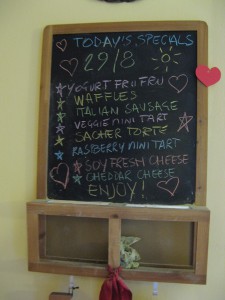 TODAY'S SPECIALS
29/8
YOGURT FROU FROU
WAFFLES
ITALIAN SAUSAGE
VEGGIE MINI TART
SACHER TORTE
RASPBERRY MINI TART
SOY FRESH CHEESE
CHEDDAR CHEESE
ENJOY!